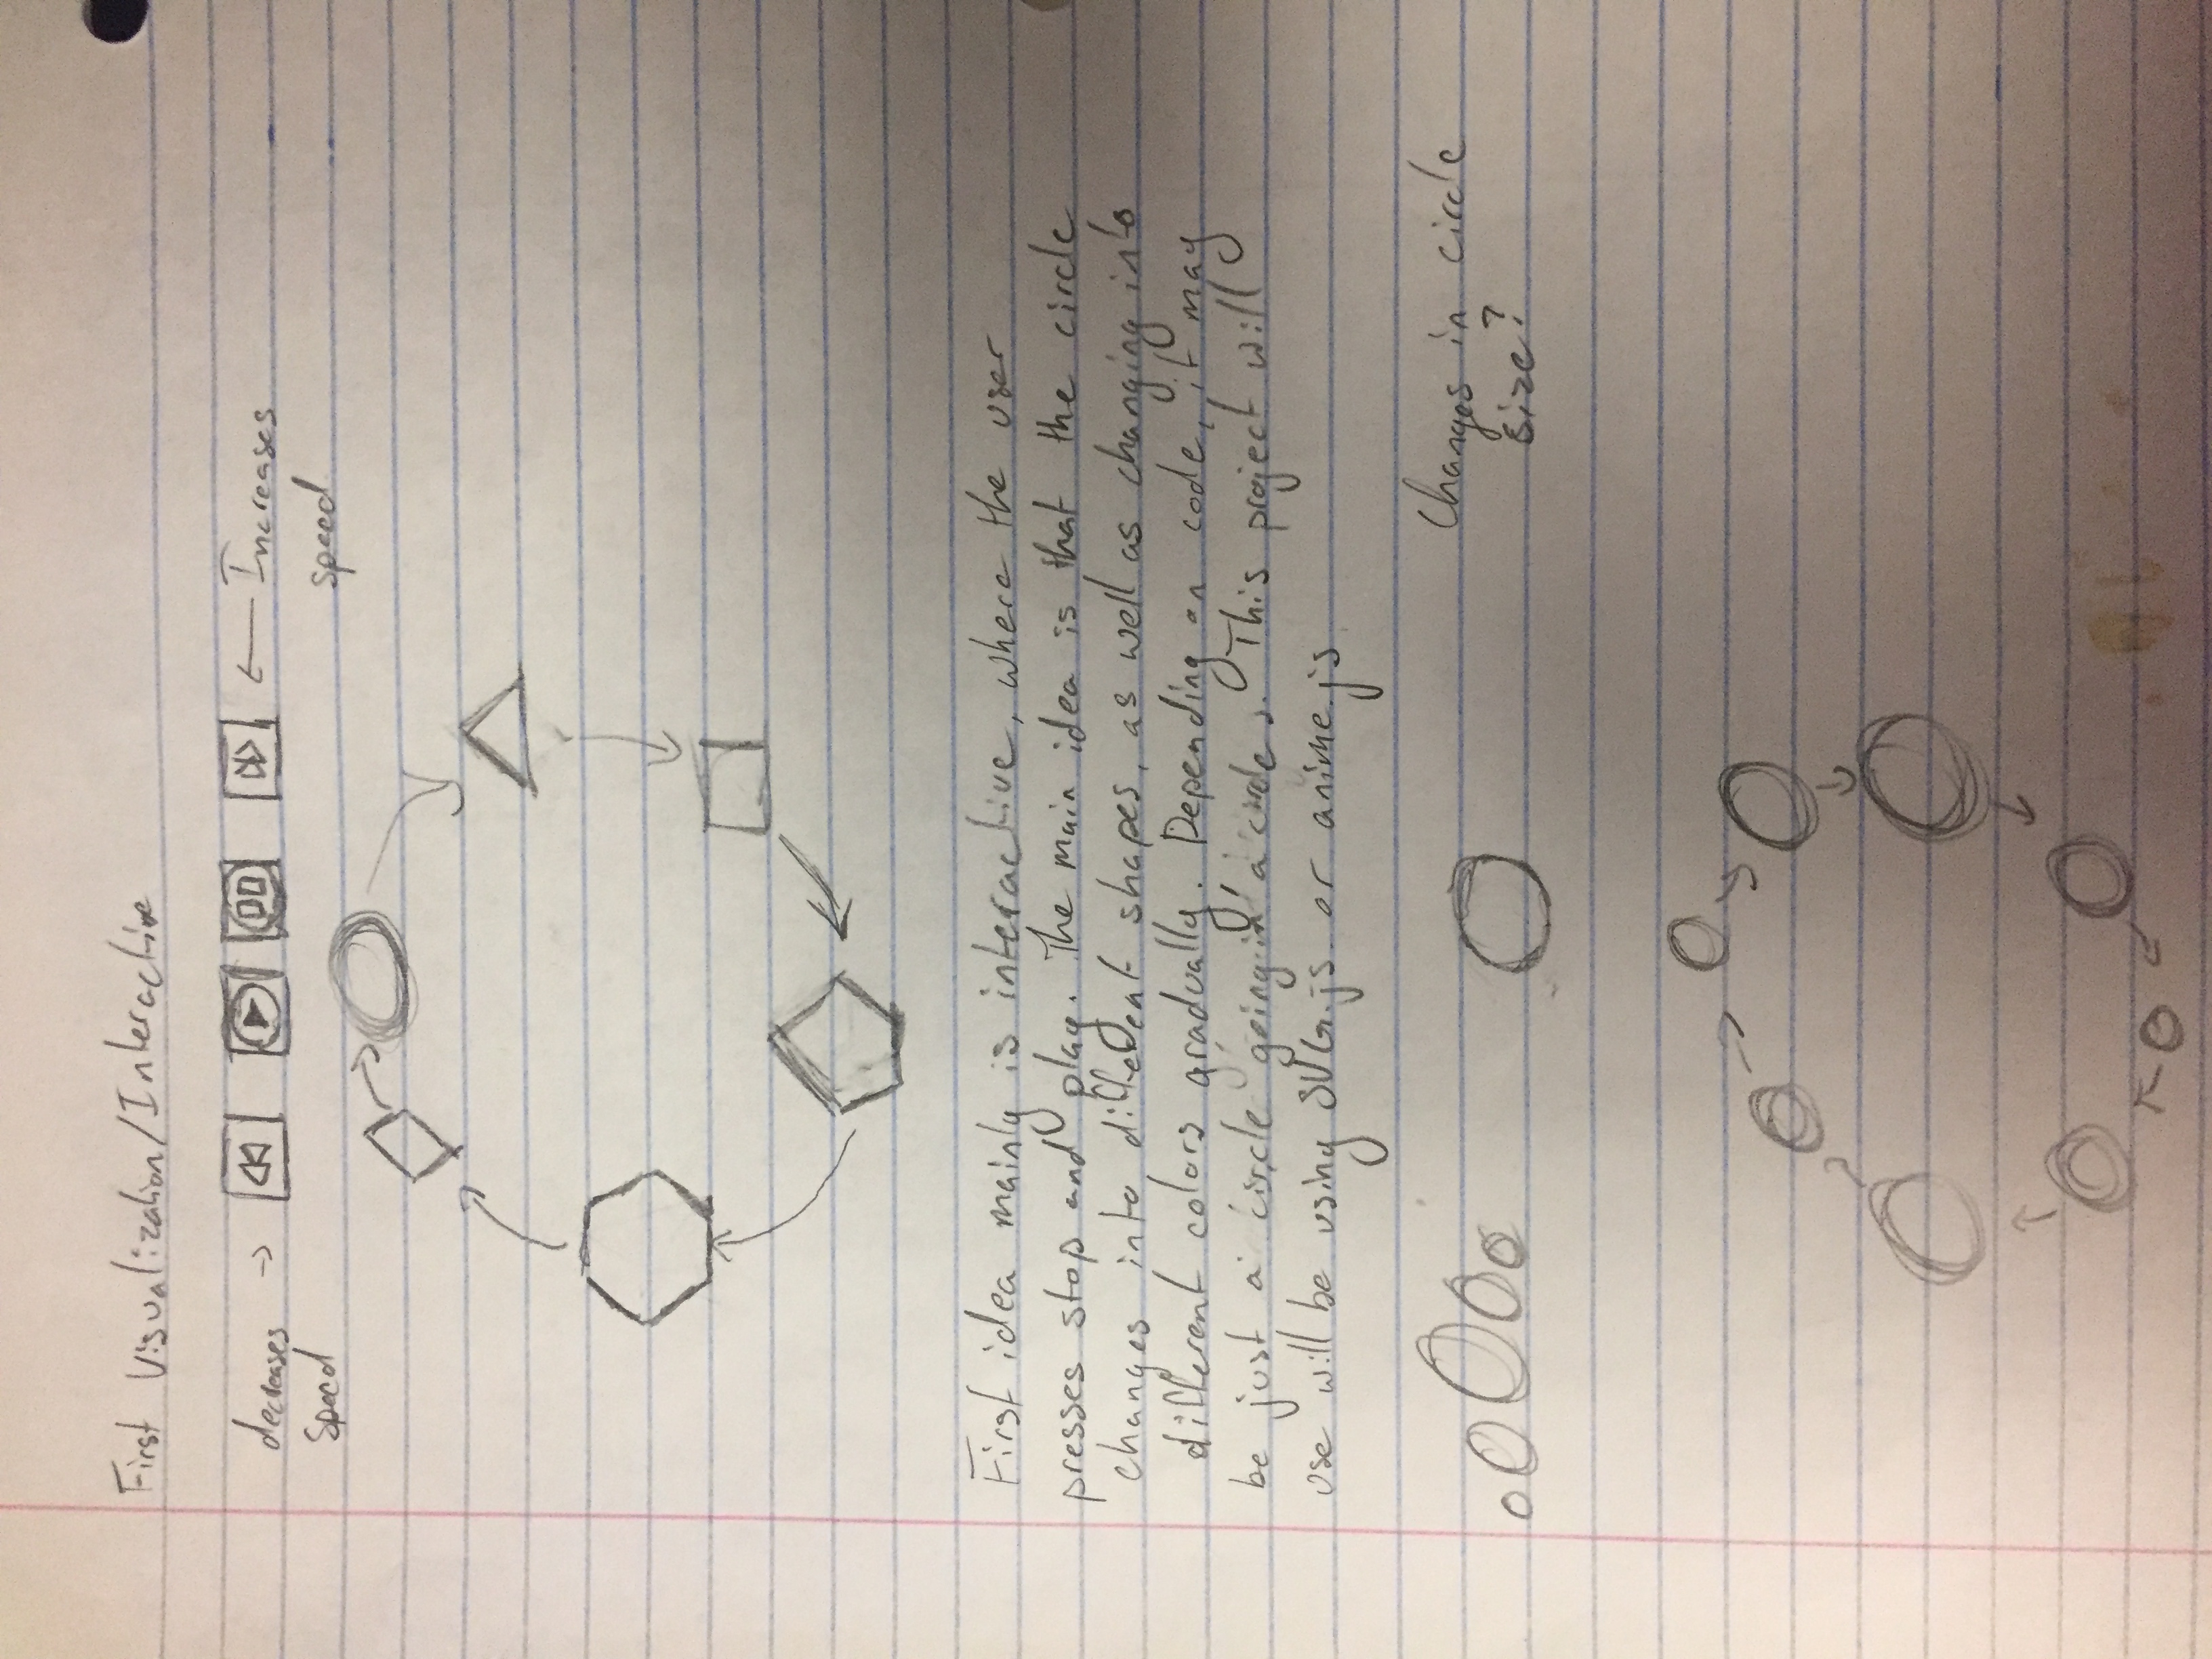 First Visualization/Interactive
decreases → Increases
speed speed
First idea mainly is interactive, where the user
presses stop and play. The main idea is that the circle
changes into different shapes, as well as changing into
different colors gradually. Depending on code, it may
be just a circle going in a circle. This project will
use will be using SVG.js or anime.js
Changes in circle
size?